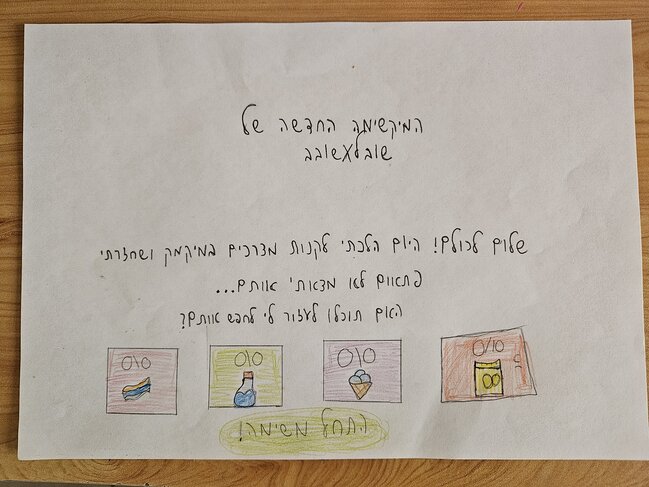 המיקשימה החדשה של
שובלעשובב
שלום לכולם! היום הלכתי לקנות מצרכים במיקמק ושחזרתי
פתאום לא מצאתי אותם...
האם תוכלו לעזור לי לחפש אותם?
0\0
0\0
0\0
0/10
התחל משימה!